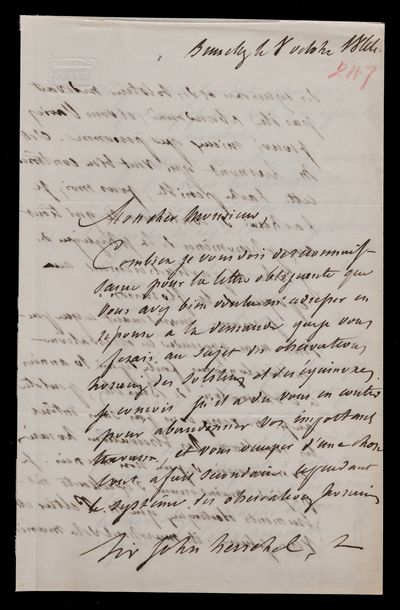 Bruxelles le 8 octobre 184
247
Mon cher Monsieur,
Combien je vous dois de reconnais-
sance pour la lettre obligeante que
vous avez bien voulu m'adresser en
réponse à la demande que je vous
ferais au sujet des observations
horaires des solstices et des équinoxes.
Je conçois qu'il a du vous en couter
pour abandonner vos importants
travaux, et vous occuper d'une chose
tout à fait secondaire. Cependant
le système des observations horaires
Sir John Herschel,